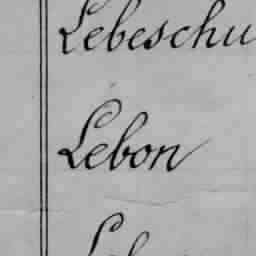 Lebeschu
Lebon